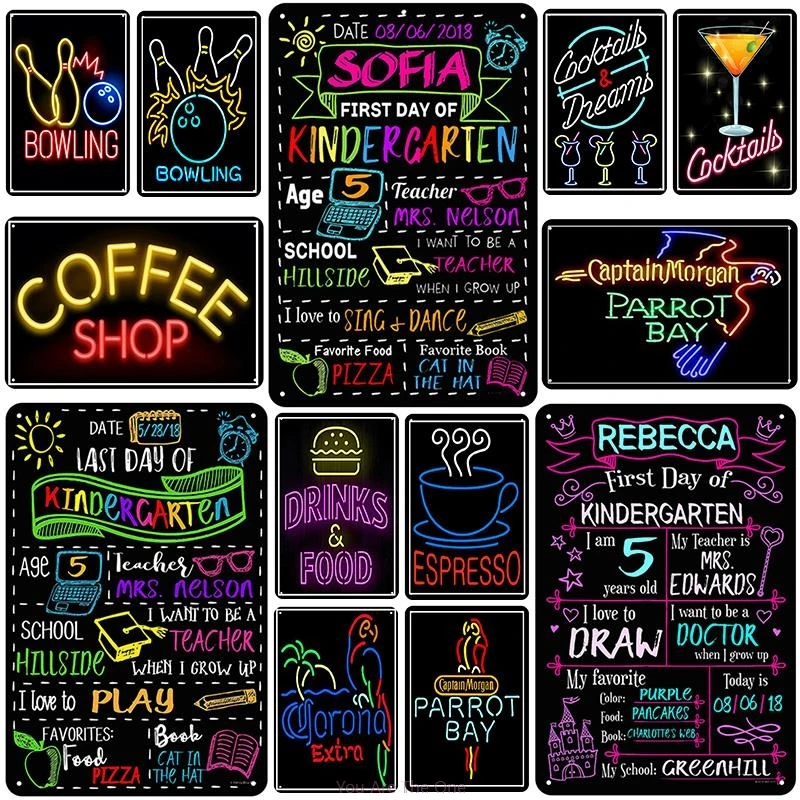 BOWLING
BOWLING
DATE 08/06/2018
SOFIA
FIRST DAY OF
KINDERGARTEN
Age 5
Teacher
MRS. NELSON
SCHOOL
HILLSIDE
I WANT TO BE A
TEACHER
WHEN I GROW UP
I love to SING & DANCE
Favorite Food
PIZZA
Favorite Book
CAT IN
THE HAT
Cocktails
&
Dreams
Cocktails
COFFEE
SHOP
Captain Morgan
PARROT
BAY
DATE 5/28/18
LAST DAY OF
KINDERGARTEN
AGE 5
Teacher
MRS. NELSON
SCHOOL
HILLSIDE
I WANT TO BE A
TEACHER
WHEN I GROW UP
I love to PLAY
FAVORITES:
Food
PIZZA
Book
CAT IN
THE HAT
DRINKS
&
FOOD
ESPRESSO
Corona
Extra
Captain Morgan
PARROT
BAY
REBECCA
First Day of
KINDERGARTEN
I am
5
years old
My Teacher is
MRS.
EDWARDS
I love to
DRAW
I want to be a
DOCTOR
when I grow up
My favorite
Color: PURPLE
Food: PANCAKES
Book: CHARLOTTE'S WEB
Today is
08/06/18
My School: GREENHILL
You Are The One